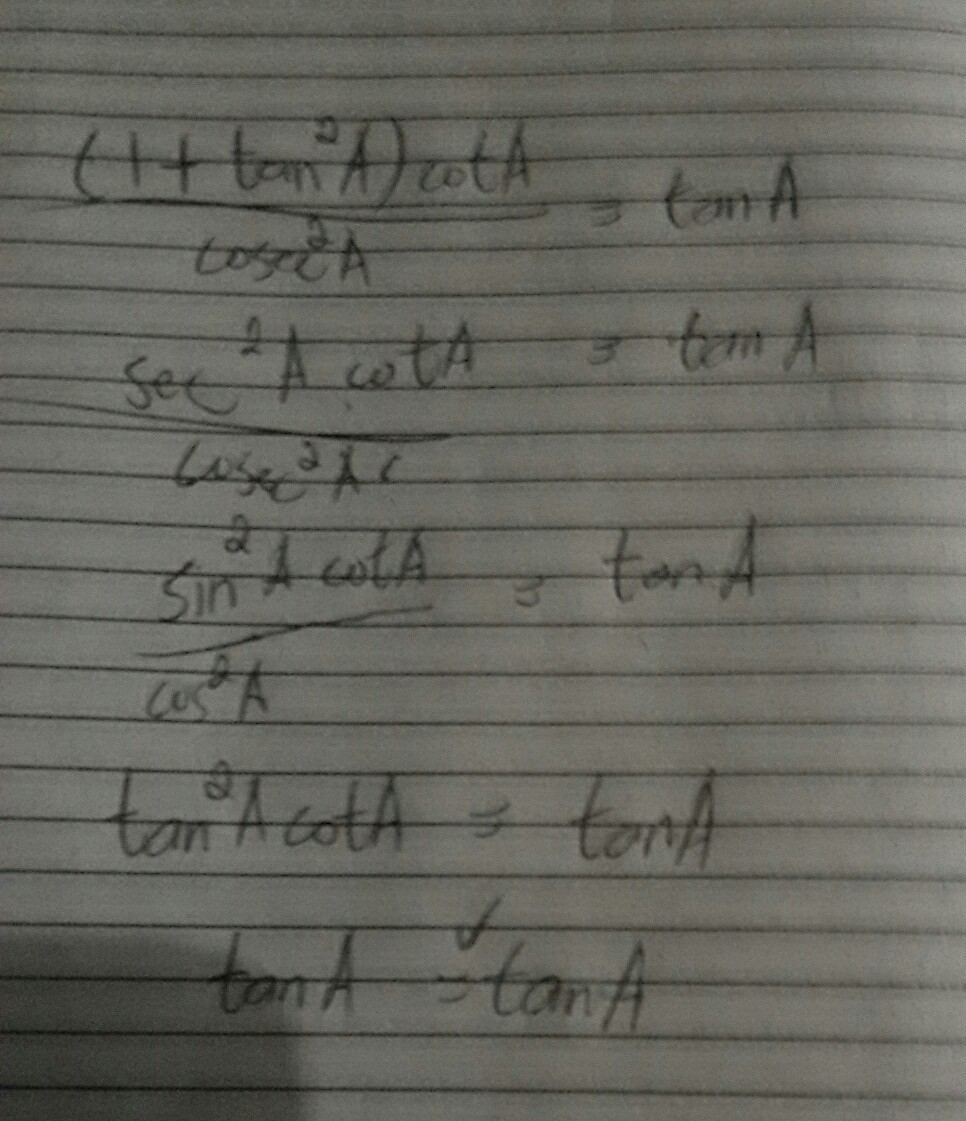 (1 + tan²A) cotA / cosec²A = tan A
sec²A cotA / cosec²A = tan A
sin²A cotA / cos²A = tan A
tan²A cotA = tanA
tanA = tanA ✓